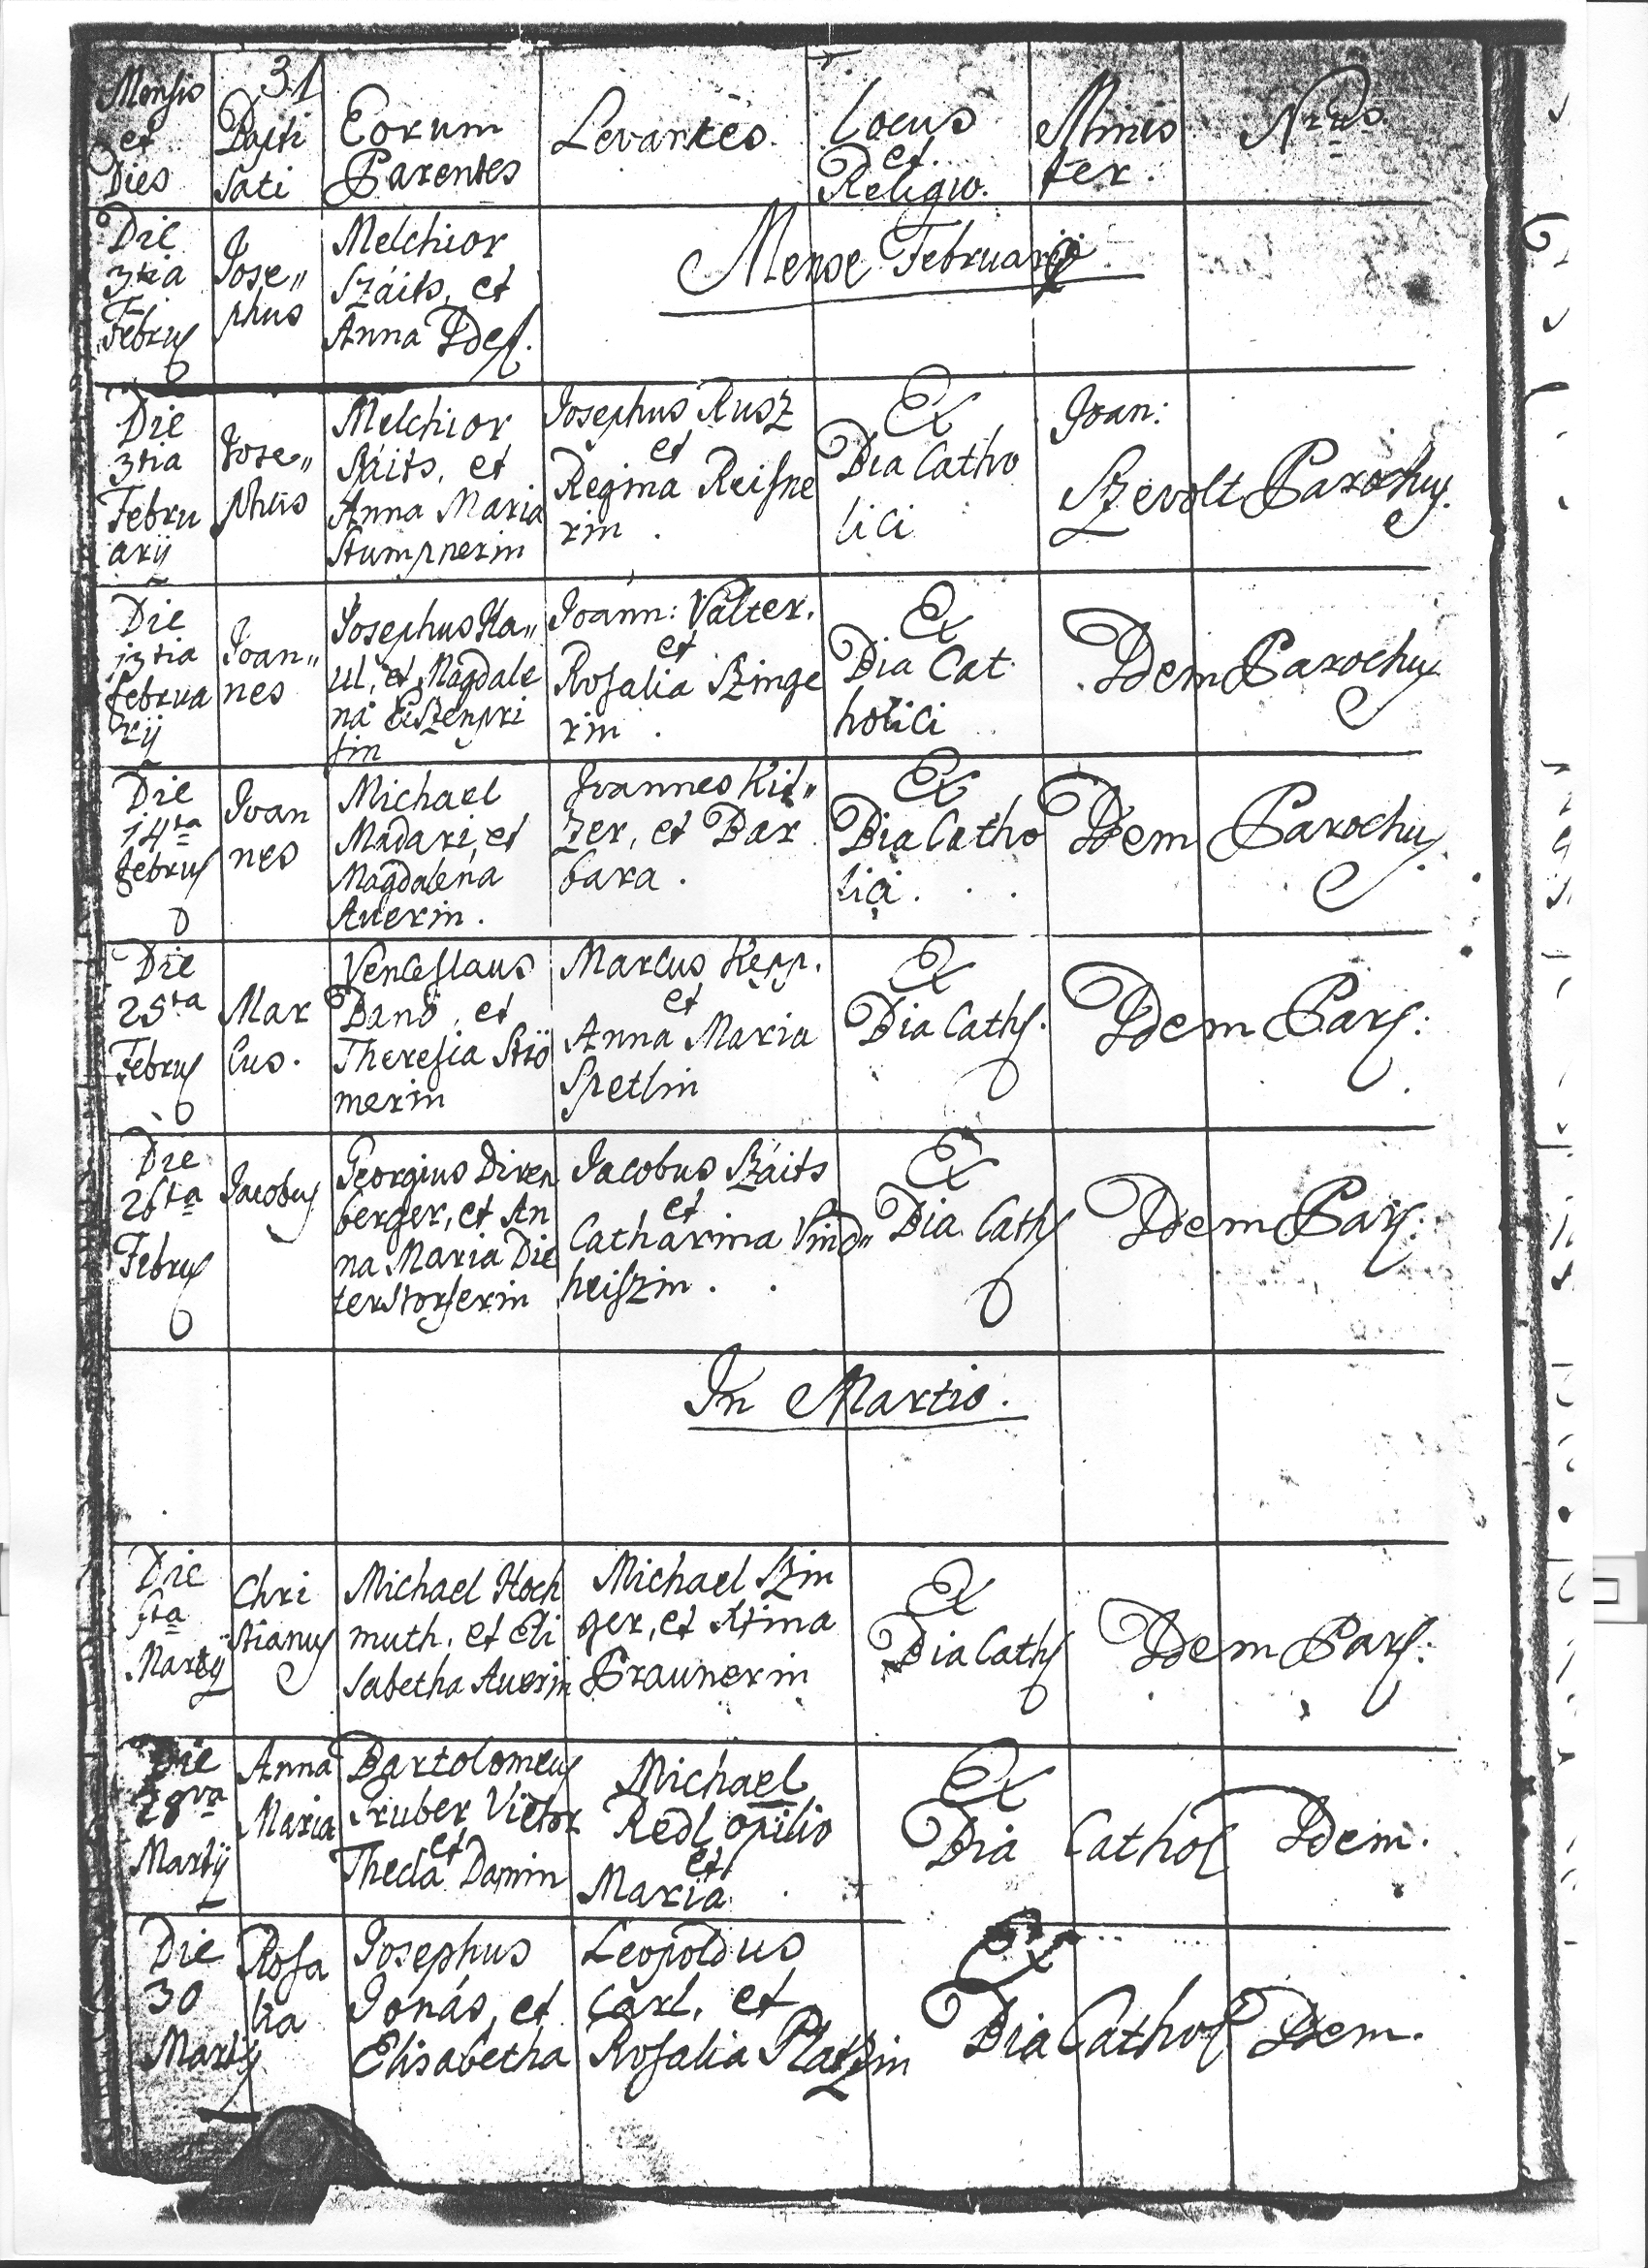 31
Mensis
et
Dies
Bapti
sati
Eorum
Parentes
Levantes.
Locus
et
Religio.
Minis
ter.
Nrus.
Die
3tia
Febru
Jose„
phus
Melchior
Száits, et
Anna
Mense Februarij
Die
3tia
Febru
arij
Jose„
phus
Melchior
Száits, et
Anna Maria
Stumpnerin
Josephus Rusz
et
Regina Reisne
rin.
Ex
Dia Catho
lici
Joan:
Szevolt Parochus.
Die
13tia
februa
rij
Joan„
nes
Josephus Ka„
ul, et Magdale
na Eiszenpri
sin
Joann: Válter.
et
Rosalia Szinge
rin.
Ex
Dia Cat
holici
Idem Parochus
Die
14ta
febru
Joan
nes
Michael
Madari, et
Magdalena
Auerin.
Joannes Kit„
zer, et Bar
bara.
Ex
Dia Catho
lici.
Idem Parochus.
Die
25ta
Febru
Mar
cus.
Venceslaus
Banó, et
Theresia Stö
merin
Marcus Kepp.
et
Anna Maria
Spetlin
Ex
Dia Cath.
Idem Par:
Die
26ta
Febru
Jacobus
Georgius Diren
berger, et An
na Maria Die
terstorferin
Jacobus Száits
et
Catharina Vind„
heiszin.
Ex
Dia Cath
Idem Par:
In Martio.
Die
Martij
Chri
stianus
Michael Hoch
muth, et Eli
sabetha Auerin
Michael Szin
ger, et
Praunerin
Ex
Dia Cath
Idem Par:
Die
28va
Martij
Anna
Maria
Bartolomeus
Gruber Viëtor
et
Thecla Damin
Michael
Redl opilio
et
Maria.
Ex
Dia Cathol
Idem.
Die
30
Martij
Rosa
lia
Josephus
Jónás, et
Elisabetha
Leopoldus
Carl, et
Rosalia Platzin
Ex
Dia Cathol
Idem.